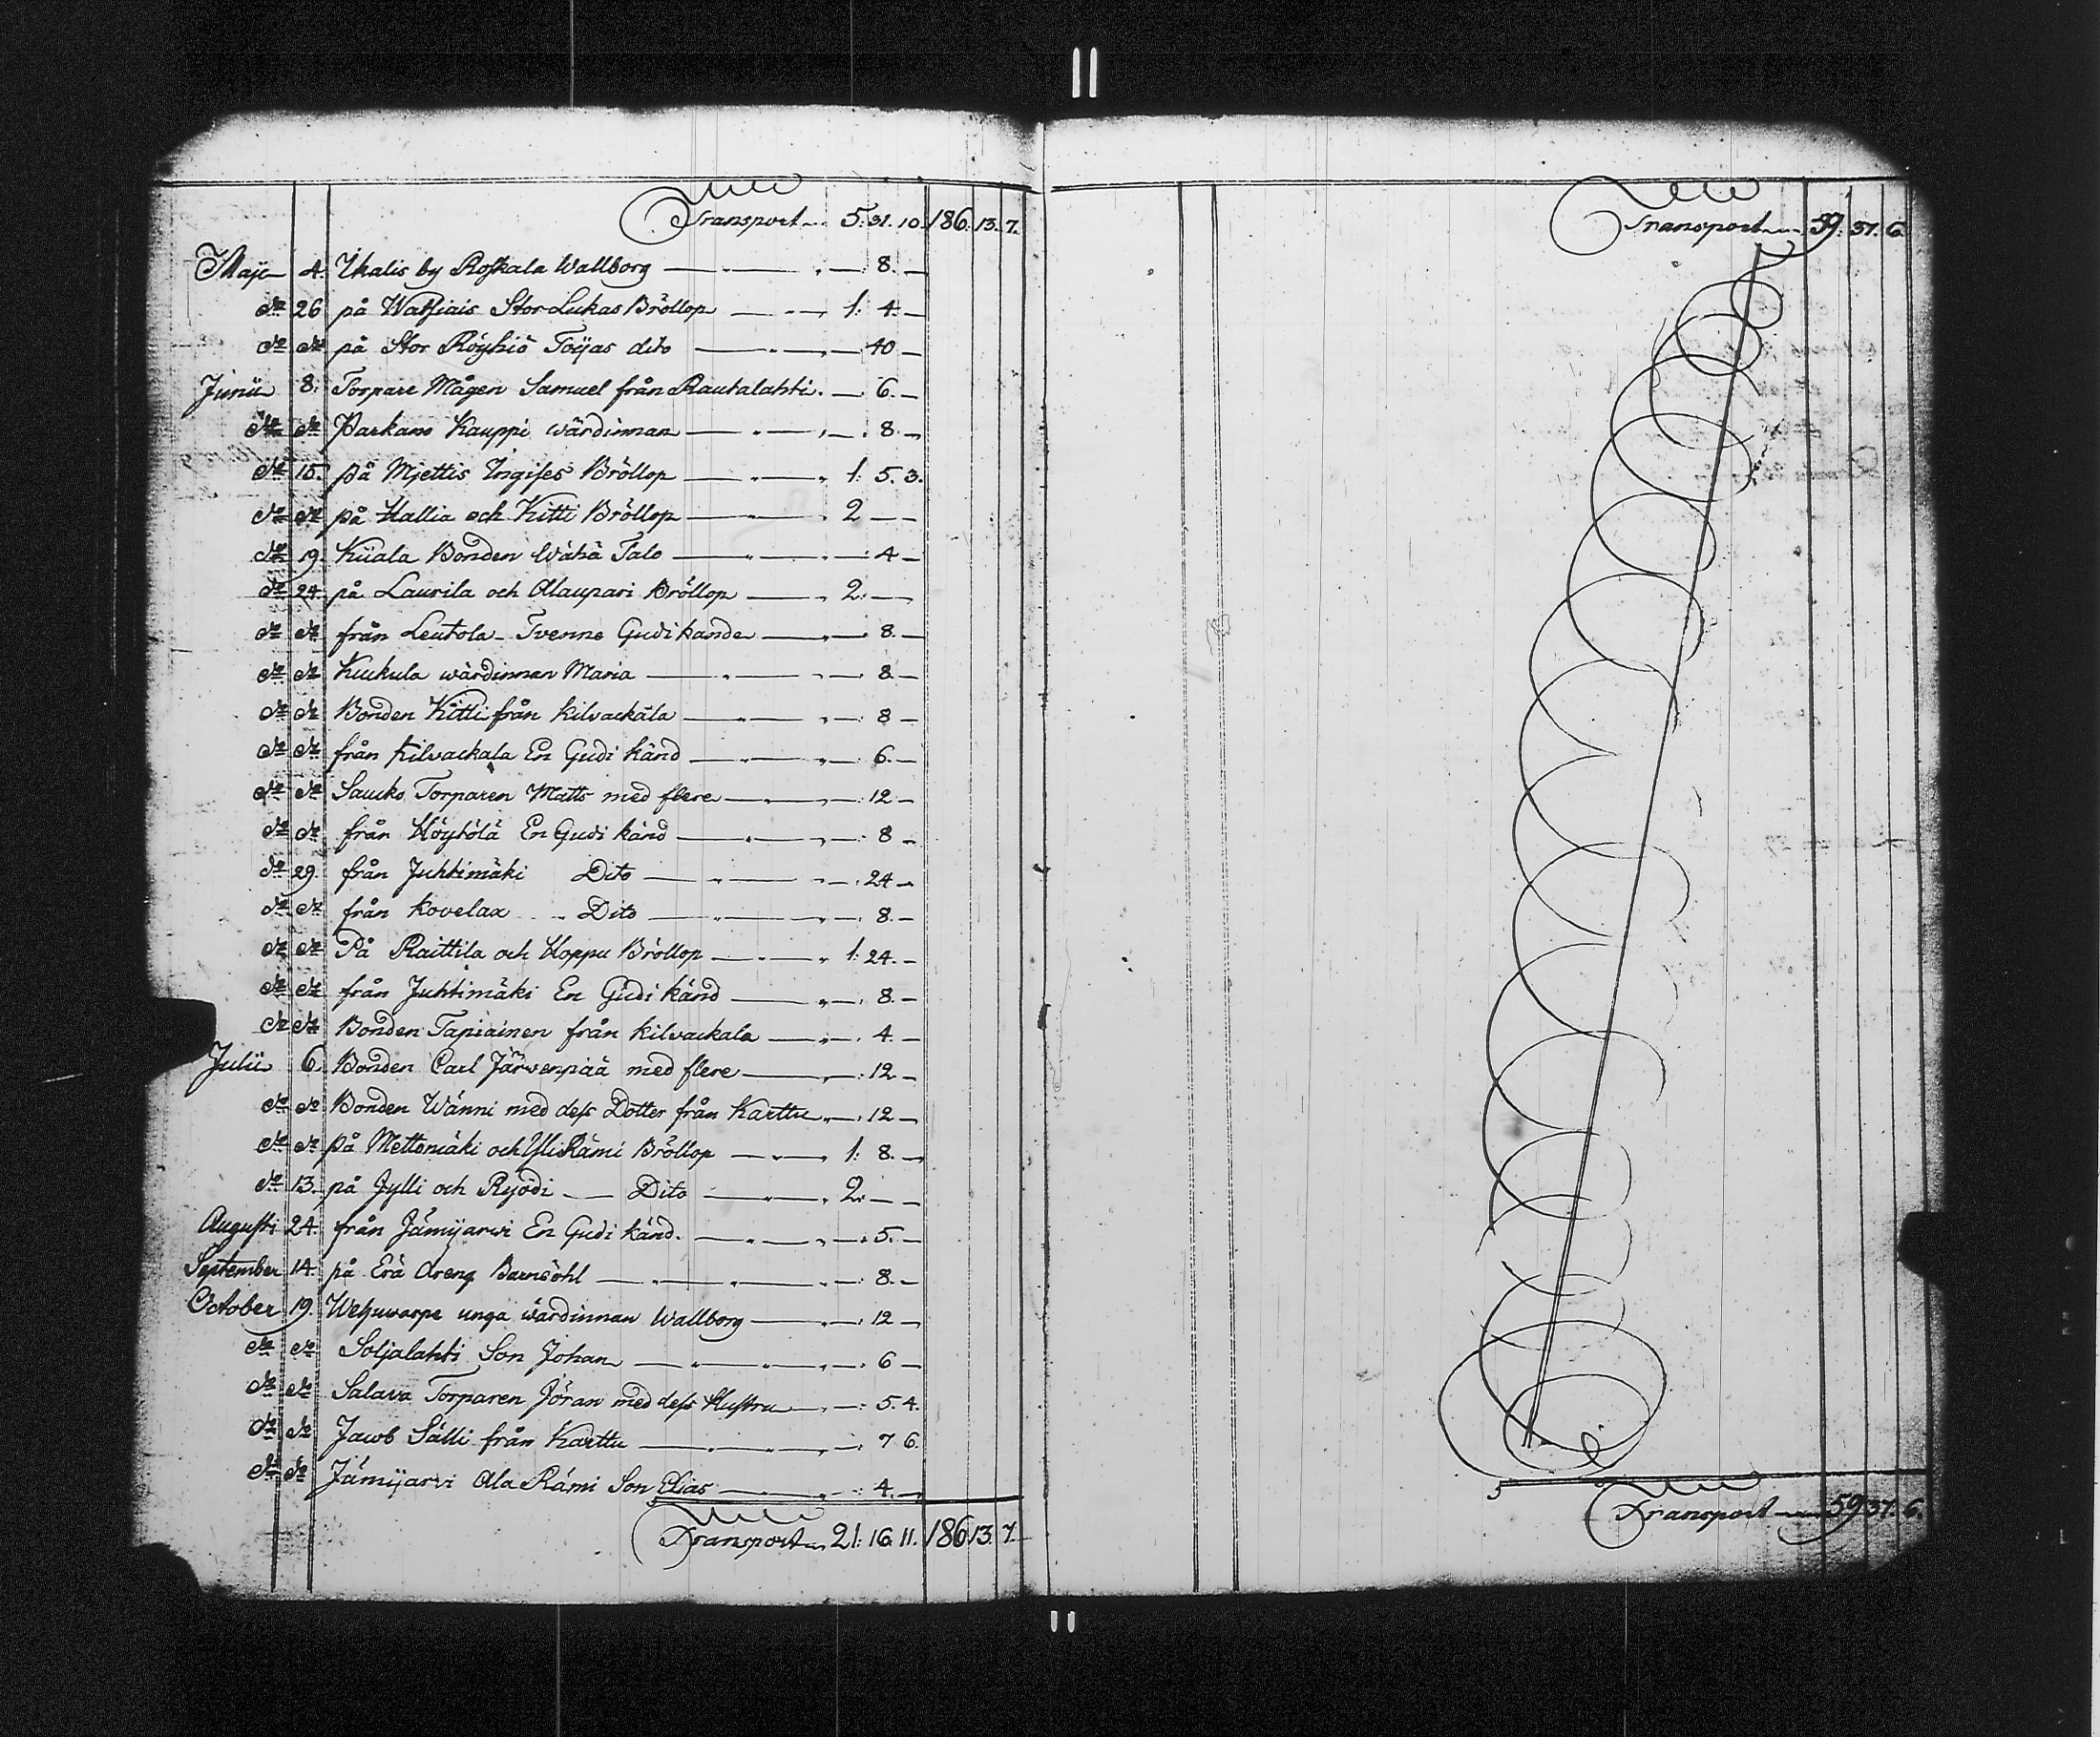 Transport 5: 31. 10. 186. 13. 7.
Maji 4. Ikalis by Roskala Wallborg — 8. —
do 26 på Watsiais Stor Lukas Bröllop — 1: 4. —
do do på Stor Röyhiö Toijas dito — 40 —
Junii 8. Torpare Mågen Samuel från Rautalahti. — 6. —
do do Parkano Kauppi wärdinnan — 8. —
do 15. på Mjettis Ingises Bröllop — 1: 5. 3.
do do på Hallia och Kitti Bröllop — 2 — —
do 19. Kiiala Bonden Wähä Talo — 4 —
do 24. på Laurila och Alaupari Bröllop — 2. —
do do från Leutola Tvenne Gudi kände — 8. —
do do Kuckula wärdinnan Maria — 8 —
do do Bonden Kitti från Kilvackala — 8 —
do do från Kilvackala En Gudi känd — 6. —
do do Saucko Torparen Matts med flere — 12 —
do do från Höytölä En Gudi känd — 8 —
do 29. från Juhtimäki Dito — 24 —
do do från Kovelax Dito — 8. —
do do På Raittila och Hoppu Bröllop — 1: 24. —
do do från Juhtimäki En Gudi känd — 8. —
do do Bonden Tapiainen från Kilvackala — 4. —
Julii 6. Bonden Carl Järvenpää med flere — 12 —
do do Bonden Wänni med dess Dotter från Karttu — 12 —
do do på Mettemäki och Yli Rämi Bröllop — 1: 8. —
do 13. på Jylli och Ryödi — Dito — 2. — —
Augusti 24. från Jämijarwi En Gudi känd. — 5. —
September 14. på Erä Areng Barnsöhl — 8. —
October 19. Wehuwarpe unga wärdinnan Wallborg — 12 —
do do Soljalahti Son Johan — 6 —
do do Salava Torparen Jöran med dess Hustru — 5. 4.
do do Jacob Sälli från Karttu — 7 6.
do do Jämijarvi Ala Rämi Son Elias — 4. —
Transport 21: 16. 11. 186. 13. 7.
Transport 59. 37. 6.
Transport 59. 37. 6.